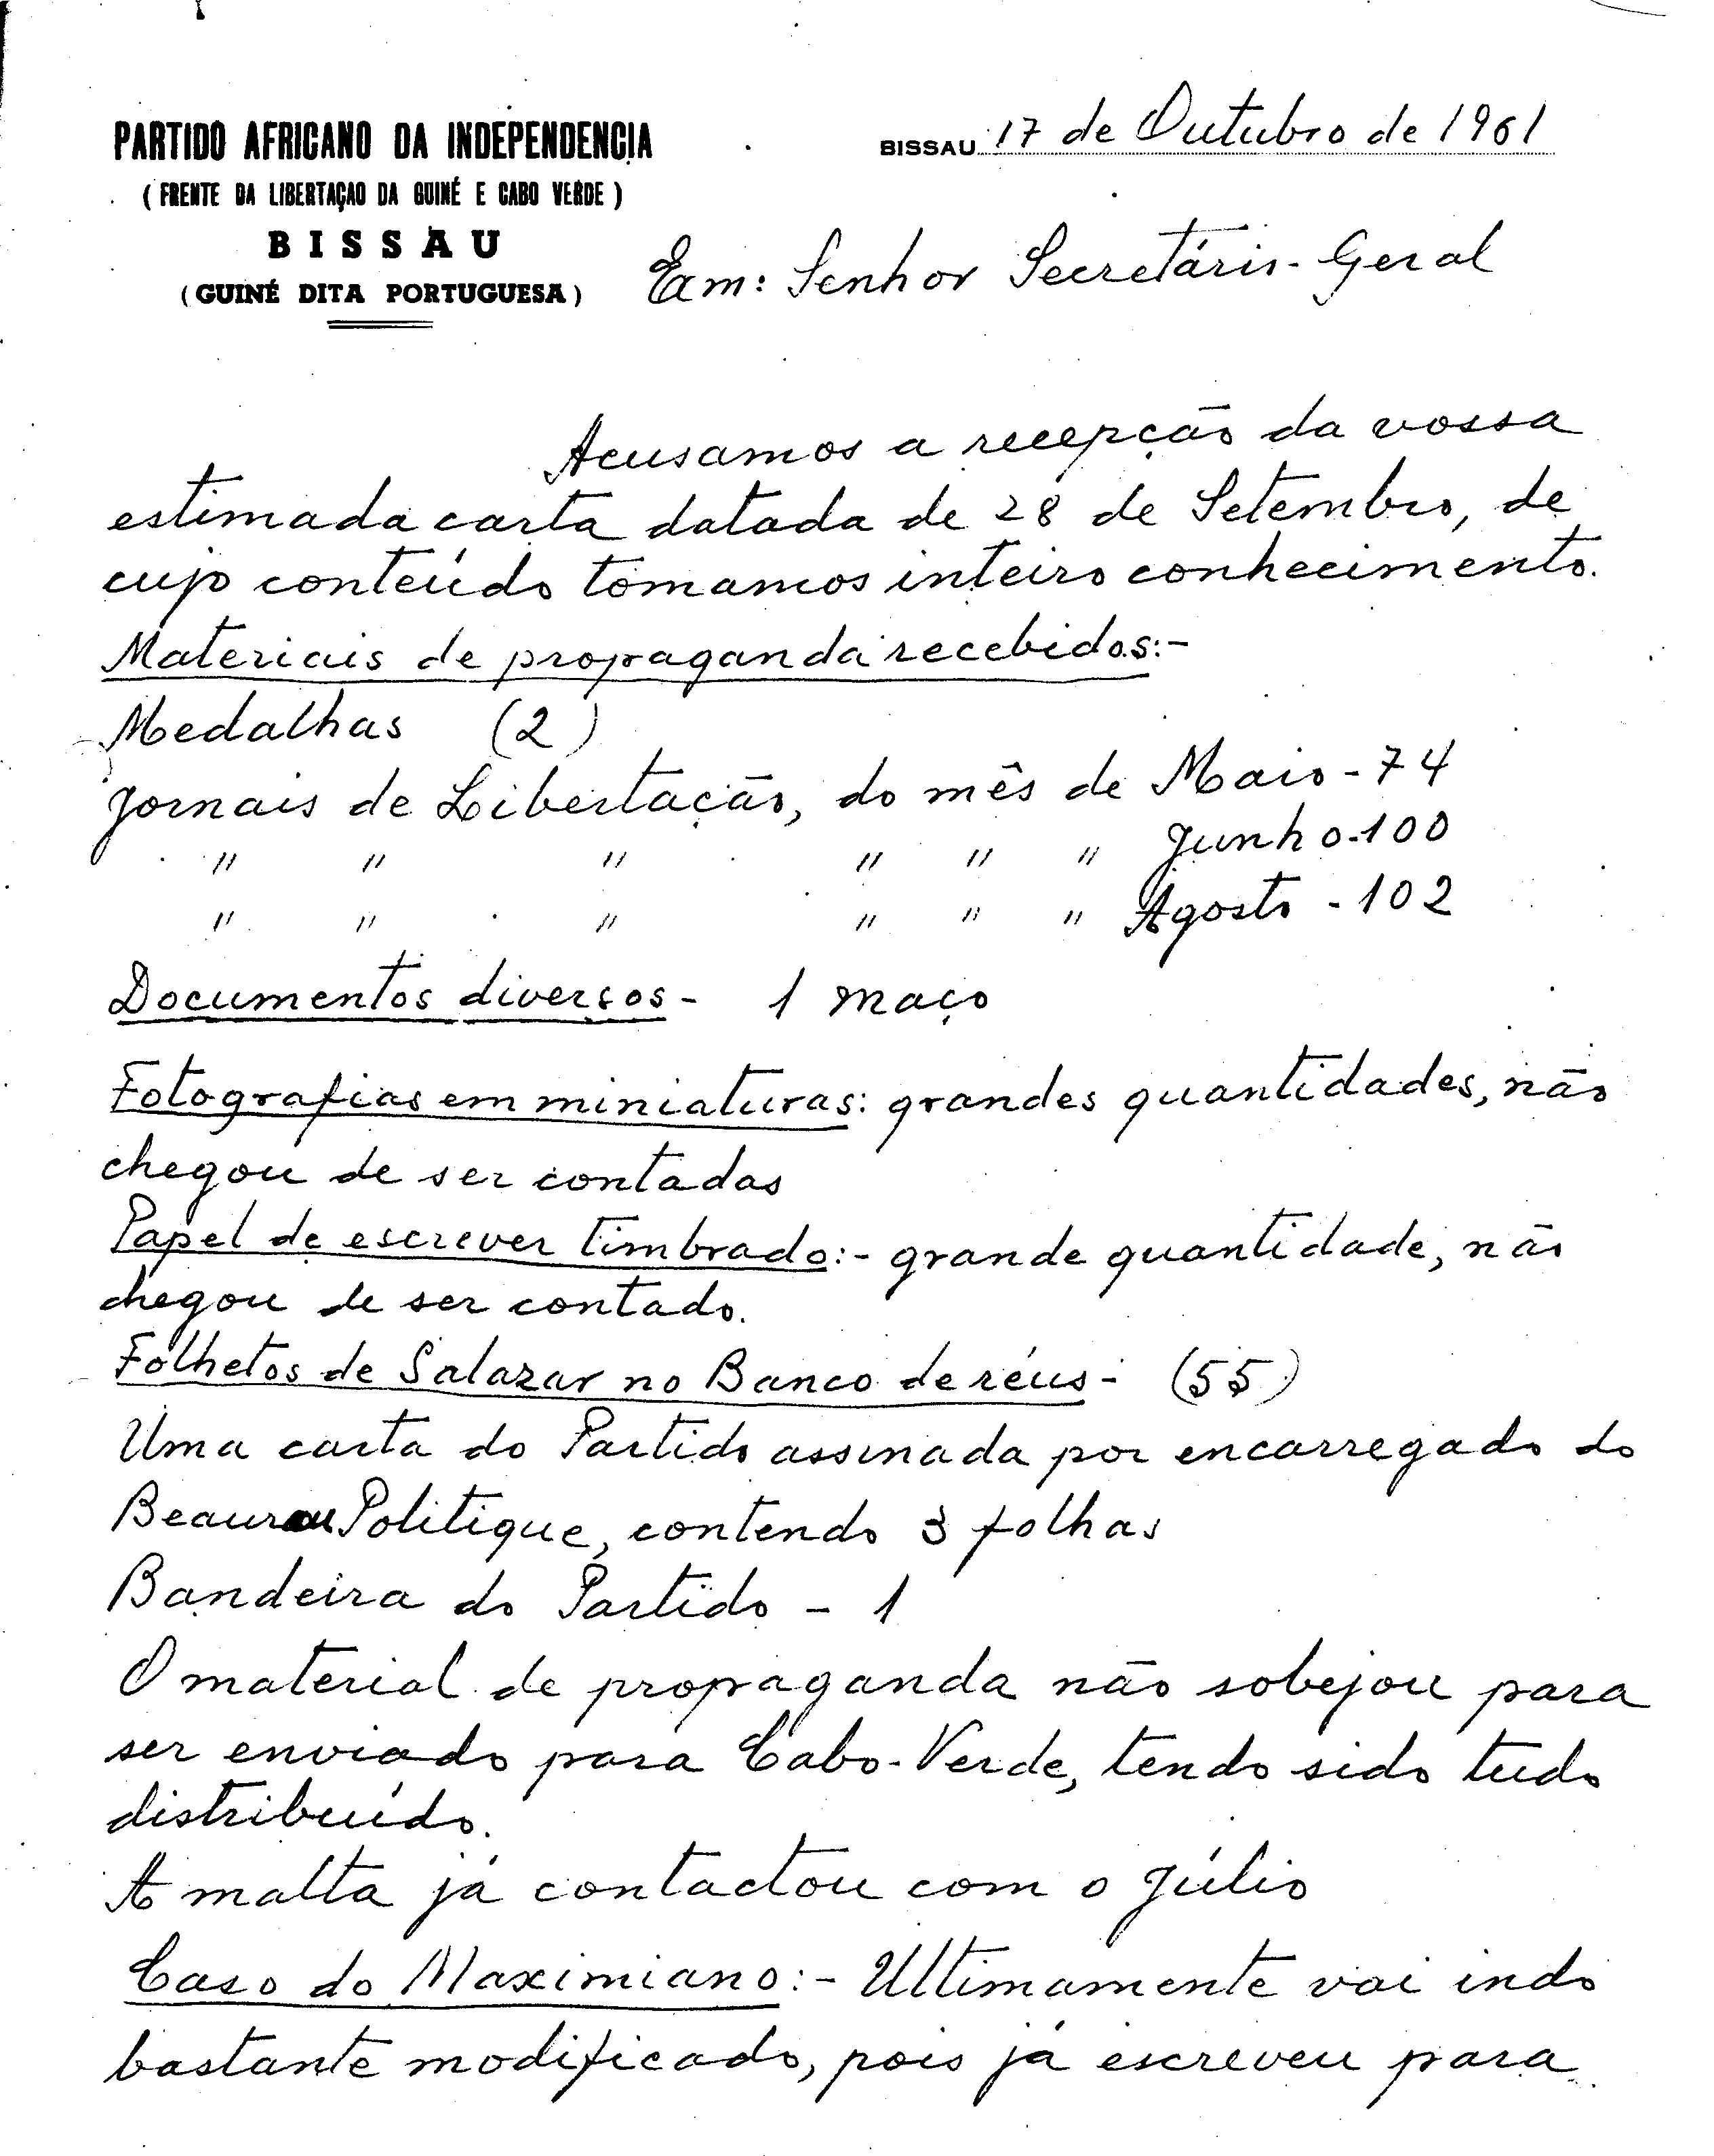 PARTIDO AFRICANO DA INDEPENDENCIA
(FRENTE DA LIBERTAÇAO DA GUINÉ E CABO VERDE)
BISSAU
(GUINÉ DITA PORTUGUESA)
BISSAU 17 de Outubro de 1961
Exm: Senhor Secretário-Geral
Acusamos a recepção da vossa
estimada carta datada de 28 de Setembro, de
cujo conteúdo tomamos inteiro conhecimento.
Materiais de propaganda recebidos:-
Medalhas (2)
Jornais de Libertação, do mês de Maio - 74
" " " " " " Junho-100
" " " " " " Agosto - 102
Documentos diversos - 1 maço
Fotografias em miniaturas: grandes quantidades, não
chegou de ser contadas
Papel de escrever timbrado:- grande quantidade, não
chegou de ser contado.
Folhetos de Salazar no Banco de réus - (55)
Uma carta do Partido assinada por encarregado do
Beaurau Politique, contendo 3 folhas
Bandeira do Partido - 1
O material de propaganda não sobejou para
ser enviado para Cabo-Verde, tendo sido tudo
distribuído.
A malta já contactou com o Júlio
Caso do Maximiano:- Ultimamente vai indo
bastante modificado, pois já escreveu para